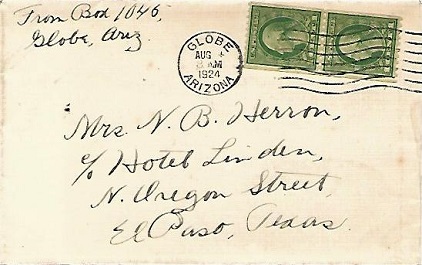 From Box 1046,
Globe, Ariz
GLOBE
AUG 4
AM
1924
ARIZONA
Mrs. N. B. Herron,
c/o Hotel Linden,
N. Oregon Street,
El Paso, Texas.